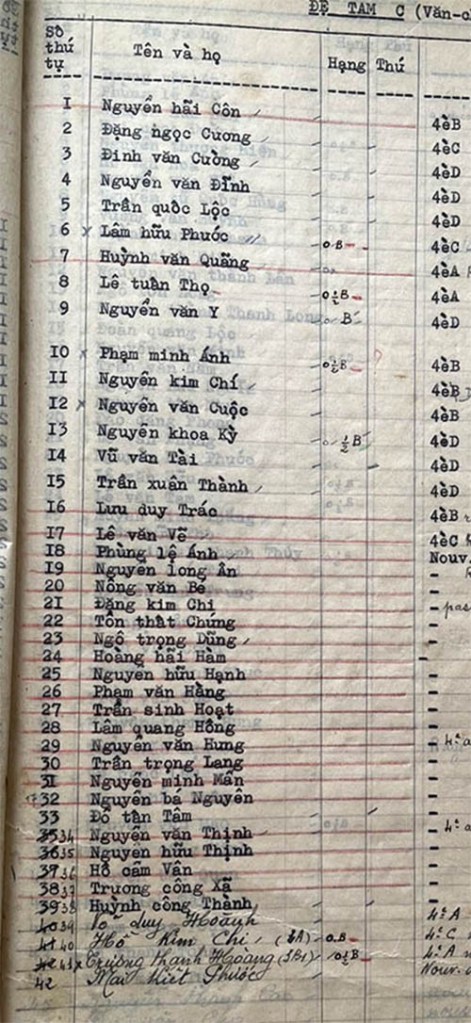 ĐỆ TAM C (Văn-c
Số thứ tự Tên và họ Hạng Thứ
1 Nguyễn hãi Côn 4èB
2 Đặng ngọc Cương 4èC
3 Đinh văn Cường 4èD
4 Nguyễn văn Đĩnh 4èD
5 Trần quốc Lộc 4èD
6 x Lâm hữu Phước oB- 4èC
7 Huỳnh văn Quãng 4èA
8 Lê tuần Thọ o½B- 4èA
9 Nguyễn văn Y o B 4èD
10 x Phạm minh Ánh o½B- 4èB
11 Nguyễn kim Chí 4èB
12 x Nguyễn văn Cuộc 4èB
13 Nguyễn khoa Kỳ o ½B 4èD
14 Vũ văn Tài 4èD
15 Trần xuân Thành 4èD
16 Lưu duy Trác 4èB
17 Lê văn Vẽ 4èC
18 Phùng lệ Ánh Nouv.
19 Nguyễn long Ân -
20 Nông văn Bé -
21 Đặng kim Chi - pas
22 Tôn thất Chứng -
23 Ngô trọng Dũng -
24 Hoàng hãi Hàm -
25 Nguyễn hữu Hạnh -
26 Phạm văn Hằng -
27 Trần sinh Hoạt -
28 Lâm quang Hồng -
29 Nguyễn văn Hưng - 4è a
30 Trần trọng Lang -
31 Nguyễn minh Mẫn -
32 Nguyễn bá Nguyên -
33 Đỗ tấn Tâm -
35 34 Nguyễn văn Thịnh - 4è a
36 35 Nguyễn hữu Thịnh -
37 36 Hồ cẩm Vân -
38 37 Trương công Xã -
39 38 Huỳnh công Thành -
40 39 Võ duy Hoành 4è A
41 40 Hồ Kim Chi (3A) o.B- 4è C
42 41 x Trương thanh Hoàng o½B- 4è A
42 Mai Kiết Phước Nouv.